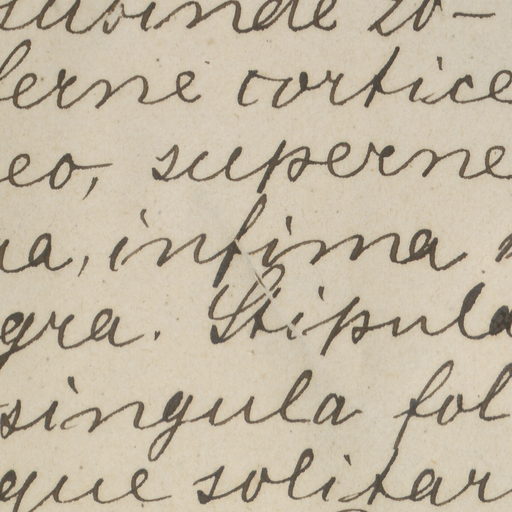 subinde 20-
ferne cortice
eo, superne
ra, infima
gra. Stipula
singula fol
que solitar